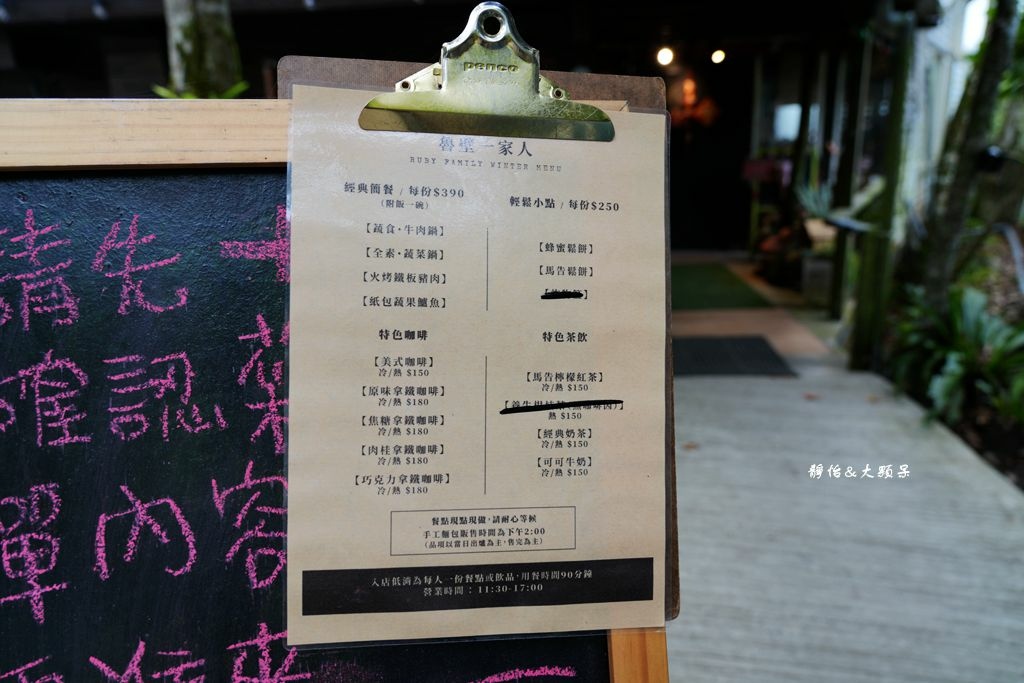 penco
魯壁一家人
RUBY FAMILY WINTER MENU
經典簡餐 / 每份$390
(附飯一碗)
【蔬食・牛肉鍋】
【全素・蔬菜鍋】
【火烤鐵板豬肉】
【紙包蔬果鱸魚】
輕鬆小點 / 每份$250
【蜂蜜鬆餅】
【馬告鬆餅】
特色咖啡
【美式咖啡】
冷/熱 $150
【原味拿鐵咖啡】
冷/熱 $180
【焦糖拿鐵咖啡】
冷/熱 $180
【肉桂拿鐵咖啡】
冷/熱 $180
【巧克力拿鐵咖啡】
冷/熱 $180
特色茶飲
【馬告檸檬紅茶】
冷/熱 $150
熱 $150
【經典奶茶】
冷/熱 $150
【可可牛奶】
冷/熱 $150
餐點現點現做，請耐心等候
手工麵包販售時間為下午2:00
(品項以當日出爐為主，售完為主)
入店低消為每人一份餐點或飲品，用餐時間90分鐘
營業時間：11:30-17:00
請先
確認
單內容
來
靜怡&大顆呆